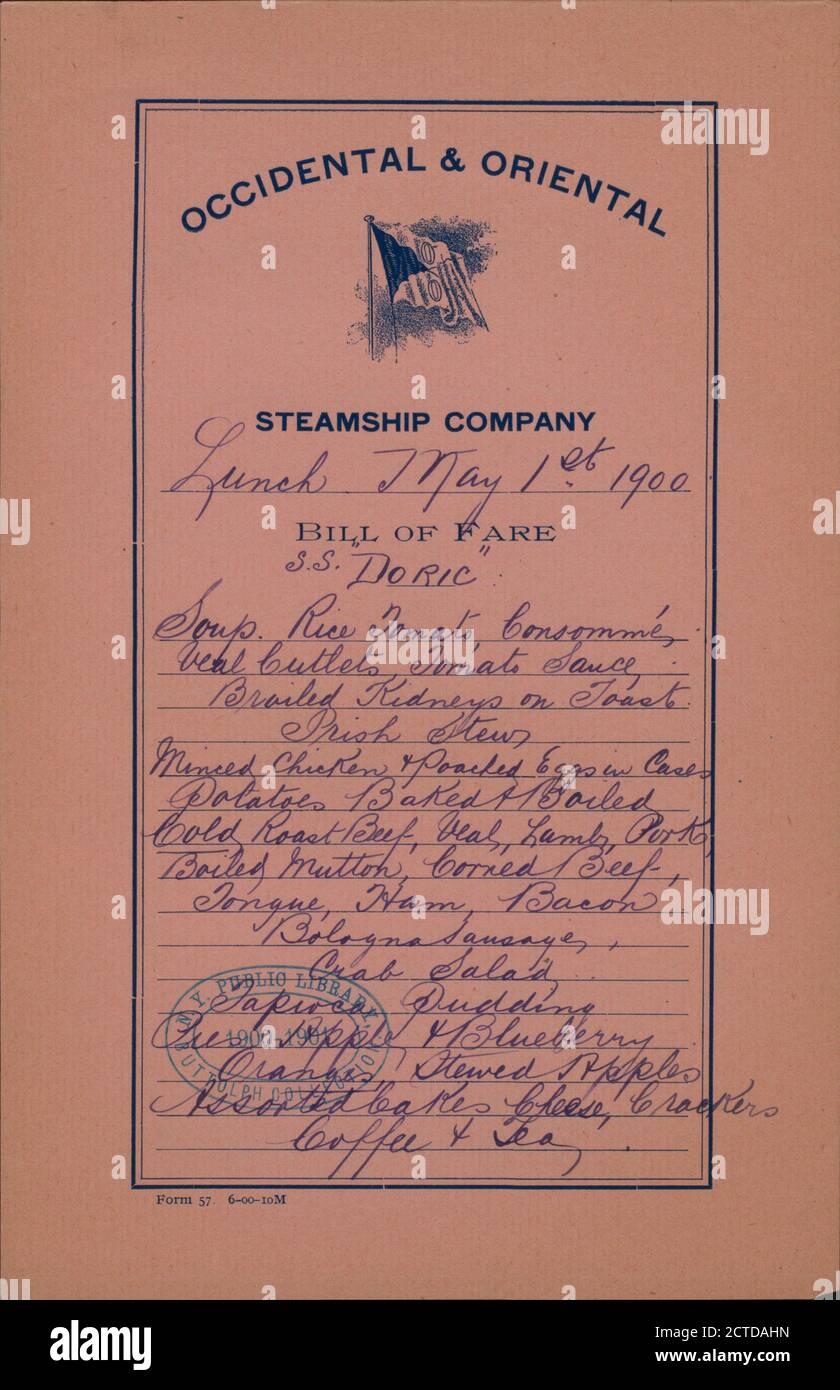 OCCIDENTAL & ORIENTAL
STEAMSHIP COMPANY
Lunch May 1st 1900
BILL OF FARE
S.S. "DORIC"
Soup. Rice Tomato, Consommé,
Veal Cutlets, Tomato Sauce,
Broiled Kidneys on Toast.
Irish Stew,
Minced Chicken & Poached Eggs in Cases
Potatoes Baked & Boiled
Cold Roast Beef, Veal, Lamb, Pork,
Boiled Mutton, Corned Beef,
Tongue, Ham, Bacon
Bologna Sausage,
Crab Salad,
Tapioca Pudding
Pies Apple & Blueberry
Oranges Stewed Apples
Assorted Cakes Cheese, Crackers
Coffee & Tea,
N. Y. PUBLIC LIBRARY,
1900-1901
BUTTOLPH COLLECTION
Form 57. 6-00-10M
alamy
Image ID: 2CTDAHN
www.alamy.com